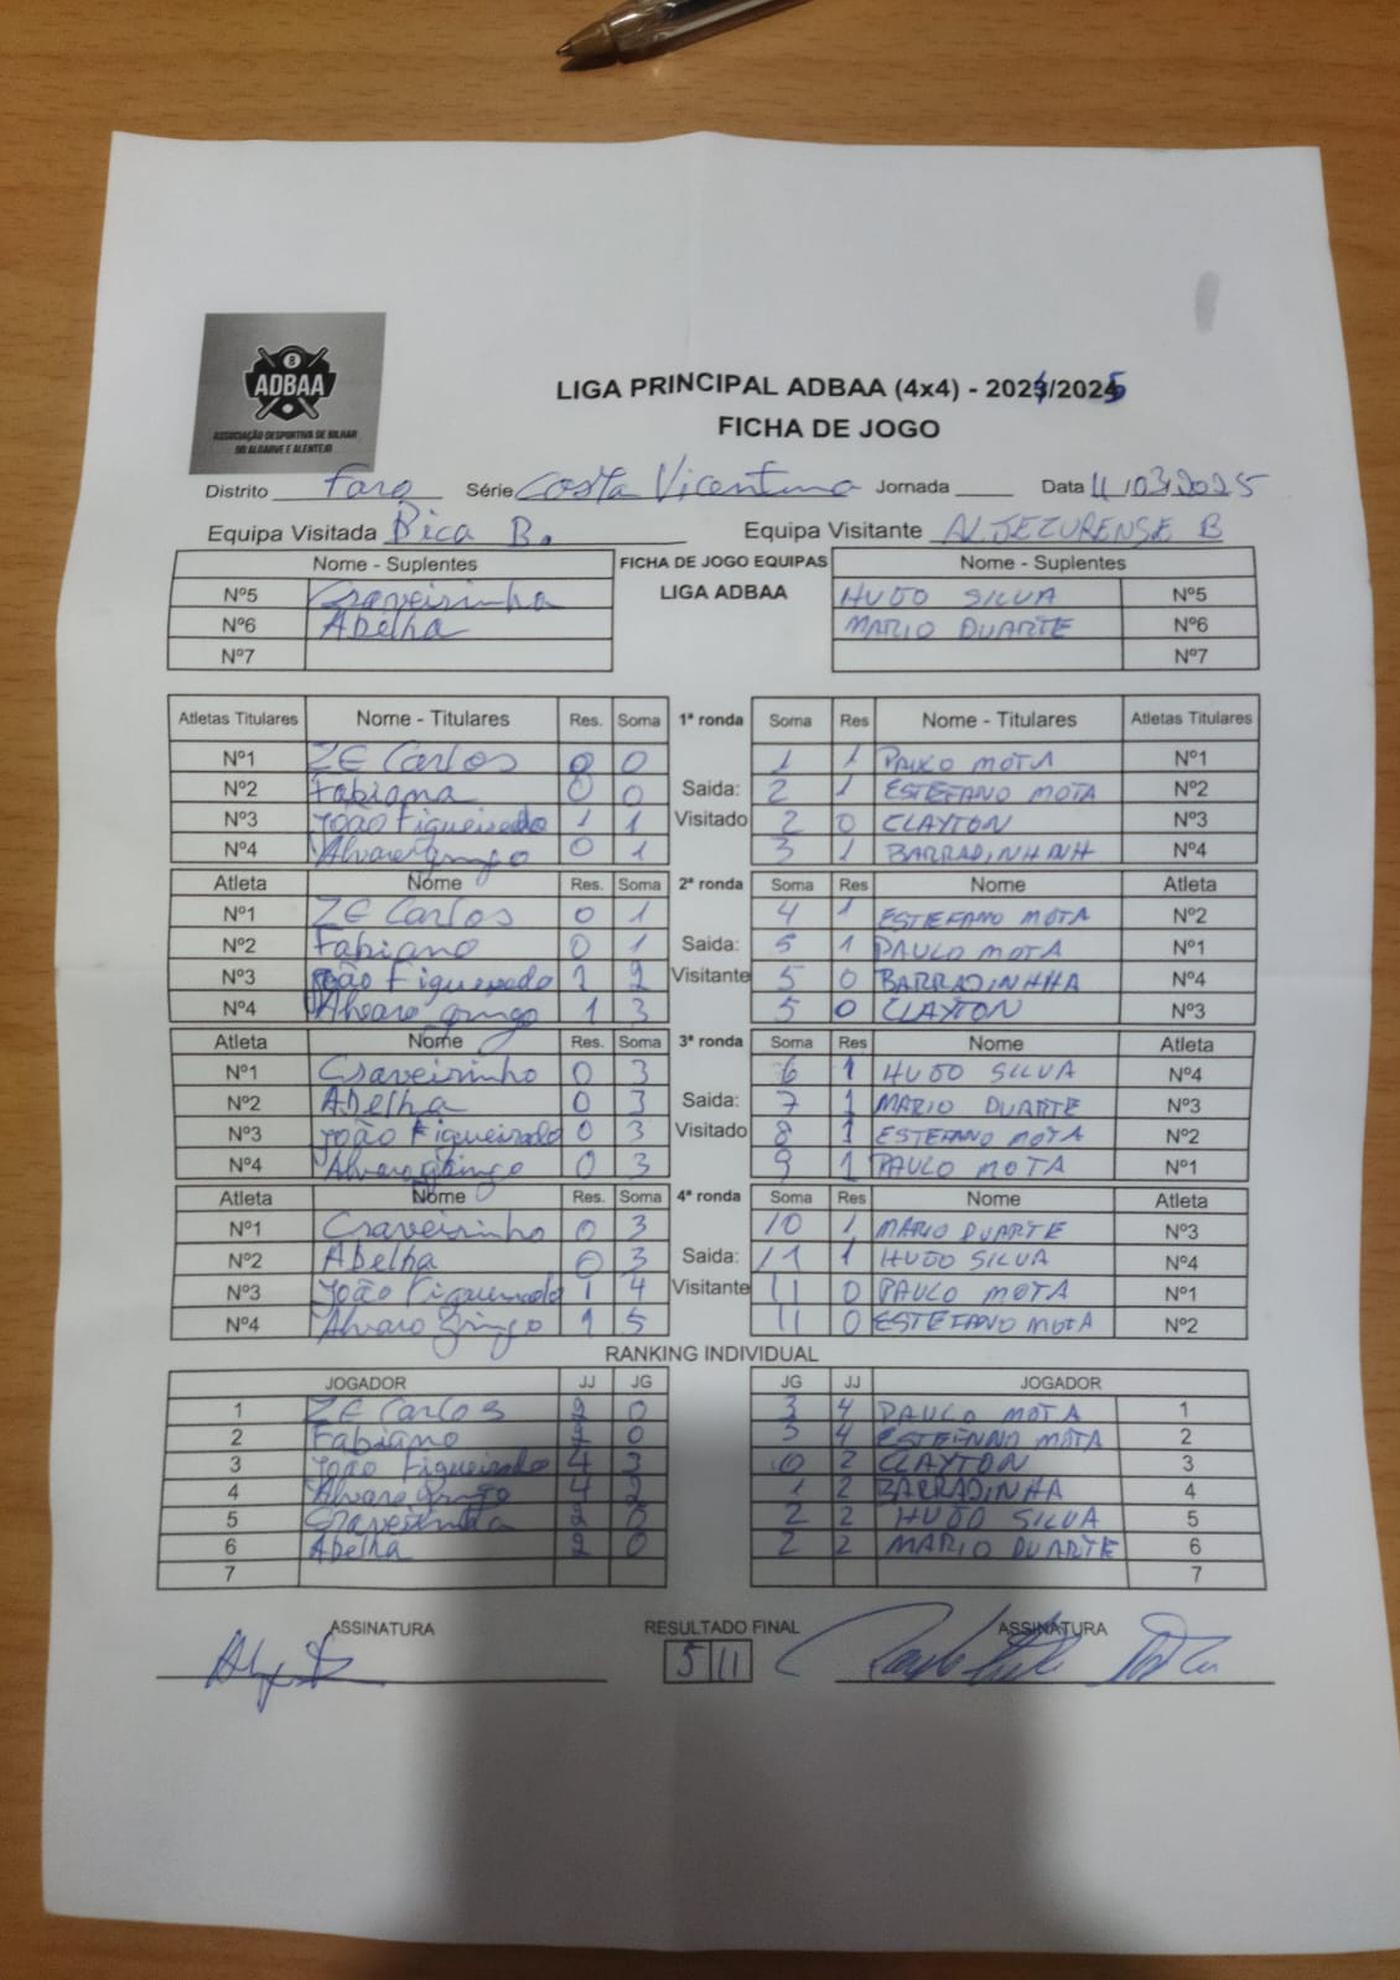 8
ADBAA
ASSOCIAÇÃO DESPORTIVA DE BILHAR
DO ALGARVE E ALENTEJO
LIGA PRINCIPAL ADBAA (4x4) - 2024/2025
FICHA DE JOGO
Distrito Faro Série Costa Vicentina Jornada Data 11/03/2025
Equipa Visitada Bica B. Equipa Visitante ALJEZURENSE B
Nome - Suplentes FICHA DE JOGO EQUIPAS Nome - Suplentes
Nº5 Craveirinha LIGA ADBAA HUGO SILVA Nº5
Nº6 Abelha MARIO DUARTE Nº6
Nº7 Nº7
Atletas Titulares Nome - Titulares Res. Soma 1ª ronda Soma Res Nome - Titulares Atletas Titulares
Nº1 ZE Carlos 0 0 1 1 PAULO MOTA Nº1
Nº2 Fabiano 0 0 Saida: 2 1 ESTEFANO MOTA Nº2
Nº3 João Figueirado 1 1 Visitado 2 0 CLAYTON Nº3
Nº4 Alvaro Gringo 0 1 3 1 Nº4
Atleta Nome Res. Soma 2ª ronda Soma Res Nome Atleta
Nº1 ZE Carlos 0 1 4 1 ESTEFANO MOTA Nº2
Nº2 Fabiano 0 1 Saida: 5 1 PAULO MOTA Nº1
Nº3 João Figueirado 1 2 Visitante 5 0 BARRADINHHA Nº4
Nº4 Alvaro gringo 1 3 5 0 CLAYTON Nº3
Atleta Nome Res. Soma 3ª ronda Soma Res Nome Atleta
Nº1 Craveirinho 0 3 6 1 HUGO SILVA Nº4
Nº2 Abelha 0 3 Saida: 7 1 MARIO DUARTE Nº3
Nº3 João Figueirado 0 3 Visitado 8 1 ESTEFANO MOTA Nº2
Nº4 Alvaro gringo 0 3 9 1 PAULO MOTA Nº1
Atleta Nome Res. Soma 4ª ronda Soma Res Nome Atleta
Nº1 Craveirinho 0 3 10 1 MARIO DUARTE Nº3
Nº2 Abelha 0 3 Saida: 11 1 HUGO SILVA Nº4
Nº3 João Figueirado 1 4 Visitante 11 0 PAULO MOTA Nº1
Nº4 Alvaro Gringo 1 5 11 0 ESTEFANO MOTA Nº2
RANKING INDIVIDUAL
JOGADOR JJ JG JG JJ JOGADOR
1 ZE Carlos 2 0 3 4 PAULO MOTA 1
2 Fabiano 2 0 3 4 MOTA 2
3 João Figueirado 4 3 0 2 CLAYTON 3
4 Alvaro Gringo 4 2 1 2 BARRADINHA 4
5 Craveirinha 2 0 2 2 HUGO SILVA 5
6 Abelha 2 0 2 2 MARIO DUARTE 6
7 7
ASSINATURA RESULTADO FINAL ASSINATURA
5 11